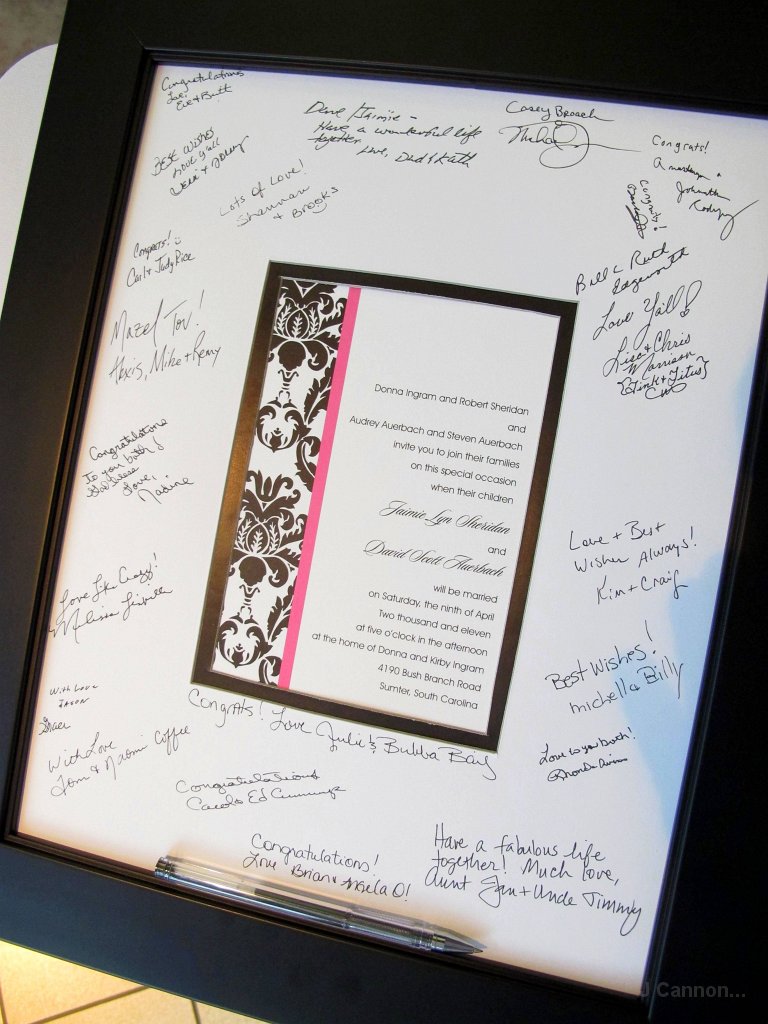 Congratulations
Love,
Dave & Jaimie -
Have a wonderful life
together.
Love, Dad & Kath
Casey Broach
Congrats!
Best Wishes
Love y'all
Lots of Love!
Shannan
+ Brooks
Congrats!
Congrats! :)
Carl + Judy Rice
Bill & Ruth
Edgeworth
Love Y'all!
Lisa & Chris
Morrison
Mazel Tov!
Alexis, Mike + Remy
Donna Ingram and Robert Sheridan
and
Audrey Auerbach and Steven Auerbach
invite you to join their families
on this special occasion
when their children
Jaimie Lyn Sheridan
and
David Scott Auerbach
will be married
on Saturday, the ninth of April
Two thousand and eleven
at five o'clock in the afternoon
at the home of Donna and Kirby Ingram
4190 Bush Branch Road
Sumter, South Carolina
Congratulations
to you both!
Love,
Nadine
Love + Best
Wishes Always!
Kim + Craig
Love Like Crazy!
Melissa
Best Wishes!
Michelle Billy
With Love
Jason
Love to you both!
With Love
Tom & Naomi Coffee
Congrats! Love Julie & Bubba Baily
Congratulations
Carol & Ed Cummings
Congratulations!
Love Brian & Angela O!
Have a fabulous life
together! Much Love,
Aunt Jan + Uncle Timmy
J Cannon...